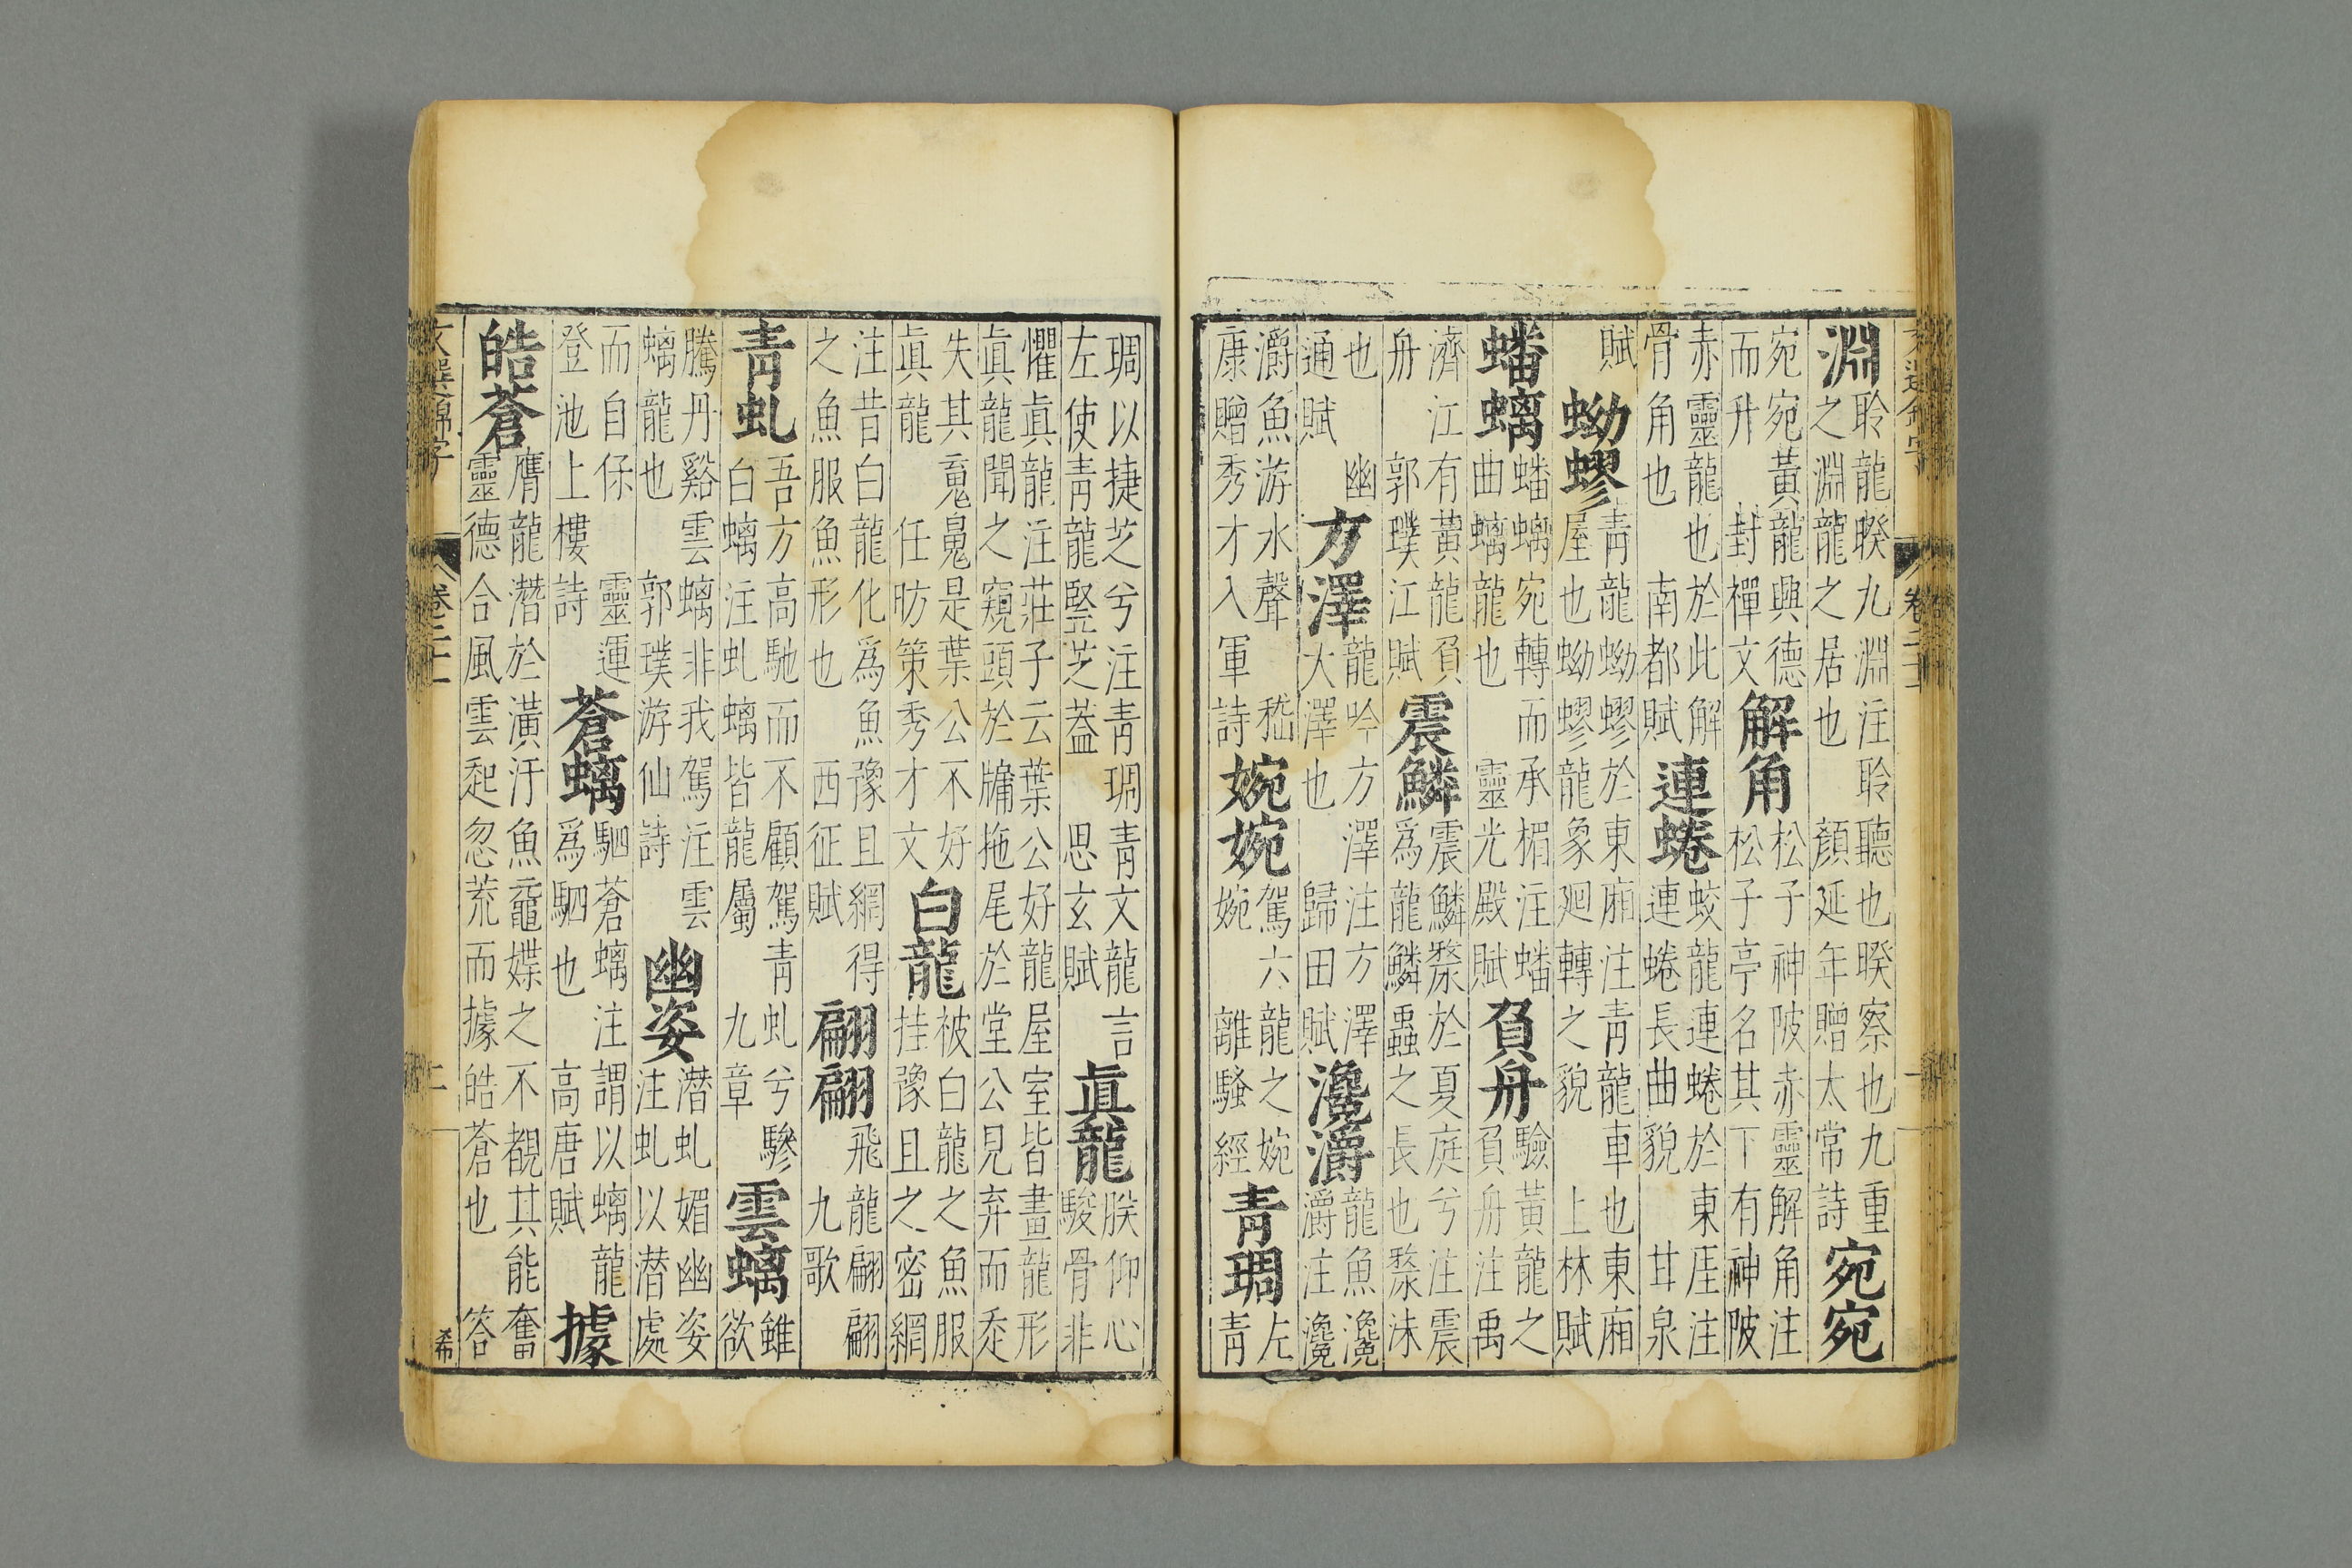 淵聆龍暌九淵注聆聽也暌察也九重之淵龍之居也顏延年贈太常詩宛宛
宛宛黃龍興德而升封禪文解角松子神陂赤靈解角注松子亭名其下有神陂
赤靈龍也於此解骨角也南都賦連蜷蛟龍連蜷於東厓注連蜷長曲貌甘泉
賦蚴蟉青龍蚴蟉於東廂注青龍車也東廂屋也蚴蟉龍象廻轉之貌上林賦
蟠螭蟠螭宛轉而承楣注蟠曲螭龍也靈光殿賦負舟驗黃龍之負舟注禹
濟江有黃龍負舟郭璞江賦震鱗震鱗漦於夏庭兮注震為龍鱗蟲之長也漦沫
也幽通賦方澤龍吟方澤注方澤大澤也歸田賦瀺灂龍魚瀺灂注瀺
灂魚游水聲嵇康贈秀才入軍詩婉婉駕六龍之婉婉離騷經青琱左青
琱以捷芝兮注青琱青文龍言左使青龍竪芝蓋思玄賦眞龍朕仰心駿骨非
懼眞龍注莊子云葉公好龍屋室皆畫龍形眞龍聞之窺頭於牖拖尾於堂公見弃而
失其是葉公不好眞龍任昉策秀才文白龍被白龍之魚服挂豫且之密網
注昔白龍化爲魚豫且網得之魚服魚形也西征賦翩翩飛龍翩翩九歌
青虬吾方高馳而不顧駕青虬兮驂白螭注虬螭皆龍屬九章雲螭雖欲
騰丹谿雲螭非我駕注雲螭龍也郭璞游仙詩幽姿潛虬媚幽姿注虬以潛處
而自保靈運登池上樓詩蒼螭駟蒼螭注謂以螭龍爲駟也高唐賦據
皓蒼膺龍潛於潢汙魚黿媟之不覩其能奮靈德合風雲超忽荒而據皓蒼也答
文選錦字 卷二十一 二 希